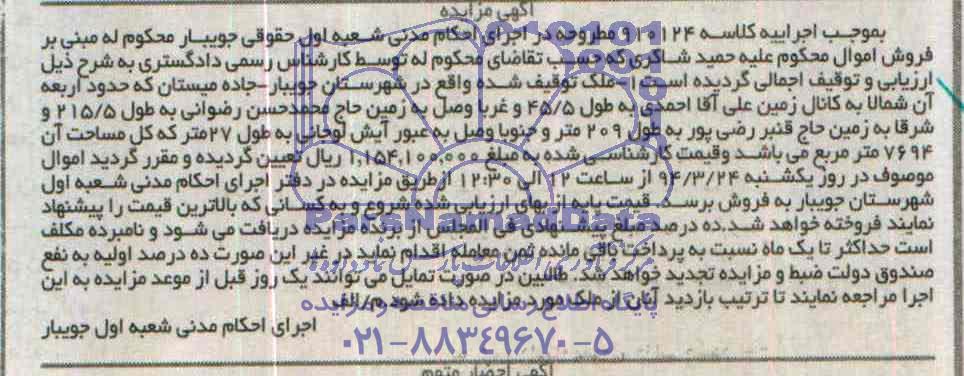 آگهی مزایده
بموجب اجراییه کلاسه ۹۱۰۱۲۴ مطروحه در اجرای احکام مدنی شعبه اول حقوقی جویبار محکوم له مبنی بر
فروش اموال محکوم علیه حمید شاکری که حسب تقاضای محکوم له توسط کارشناس رسمی دادگستری به شرح ذیل
ارزیابی و توقیف اجمالی گردیده است ۱- ملک توقیف شده واقع در شهرستان جویبار-جاده میستان که حدود اربعه
آن شمالا به کانال زمین علی آقا احمدی به طول ۴۵/۵ و غربا وصل به زمین حاج محمدحسن رضوانی به طول ۲۱۵/۵ و
شرقا به زمین حاج قنبر رضی پور به طول ۲۰۹ متر و جنوبا وصل به عبور آیش لوجانی به طول ۲۷متر که کل مساحت آن
۷۶۹۴ متر مربع می باشد وقیمت کارشناسی شده به مبلغ ۱,۱۵۴,۱۰۰,۰۰۰ ریال تعیین گردیده و مقرر گردید اموال
موصوف در روز یکشنبه ۹۴/۳/۲۴ از ساعت ۱۲ الی ۱۲:۳۰ ازطریق مزایده در دفتر اجرای احکام مدنی شعبه اول
شهرستان جویبار به فروش برسد. قیمت پایه از بهای ارزیابی شده شروع و به کسانی که بالاترین قیمت را پیشنهاد
نمایند فروخته خواهد شد.ده درصد مبلغ پیشنهادی فی المجلس از برنده مزایده دریافت می شود و نامبرده مکلف
است حداکثر تا یک ماه نسبت به پرداخت باقی مانده ثمن معامله اقدام نماید در غیر این صورت ده درصد اولیه به نفع
صندوق دولت ضبط و مزایده تجدید خواهد شد. طالبین در صورت تمایل می توانند یک روز قبل از موعد مزایده به این
اجرا مراجعه نمایند تا ترتیب بازدید آنان از ملک مورد مزایده داده شود م/الف
اجرای احکام مدنی شعبه اول جویبار
ParsNamadData
پایگاه اطلاع رسانی مناقصه و مزایده
۰۲۱-۸۸۳۴۹۶۷۰-۵
آگهی احضار متهم